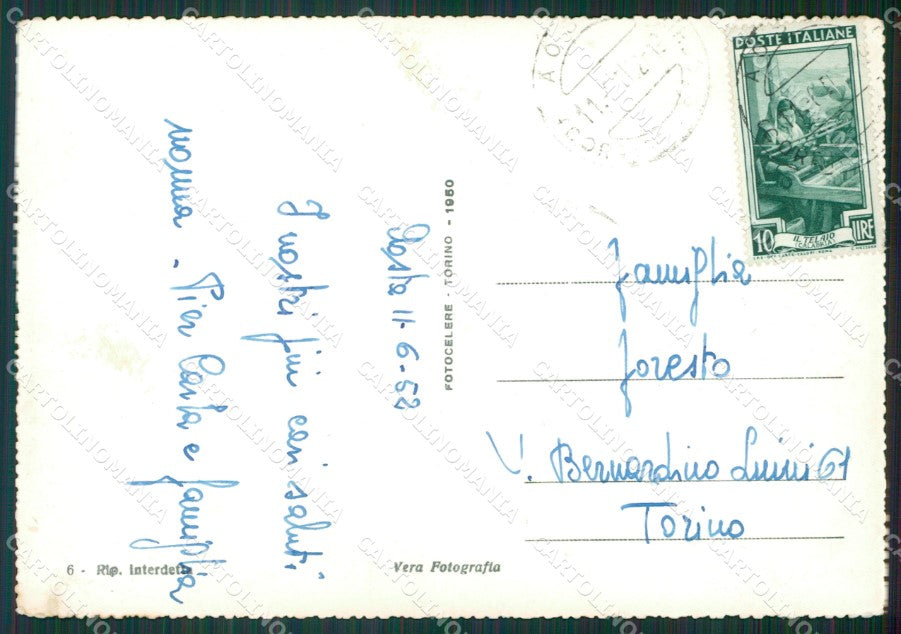 Aosta 11-6-52
I nostri più cari saluti
nonna - Pier Carla e famiglia
FOTOCELERE - TORINO - 1950
POSTE ITALIANE
10 LIRE
IL TELAIO
Famiglia
Foresto
V. Bernardino Luini 61
Torino
6 - Rip. interdetta
Vera Fotografia
CARTOLINOMANIA